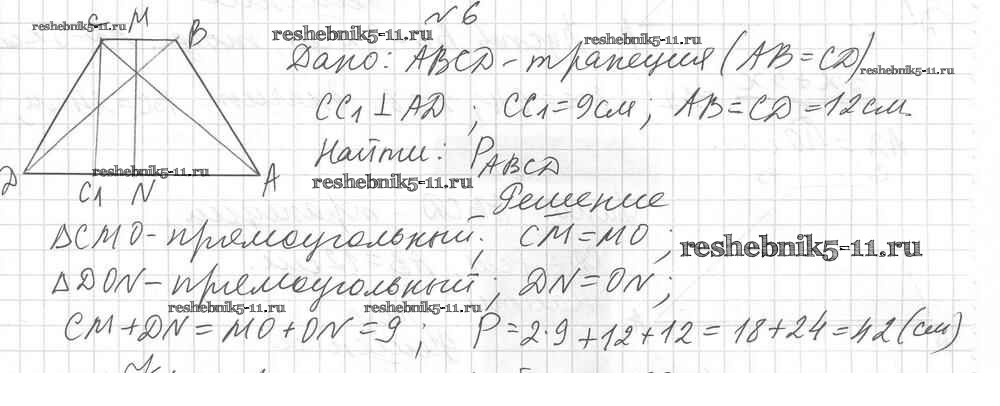 № 6
reshebnik5-11.ru
C M B
reshebnik5-11.ru
reshebnik5-11.ru
Дано: ABCD - трапеция (AB = CD)
reshebnik5-11.ru
CC1 ⊥ AD ; CC1 = 9см ; AB = CD = 12см
Найти: P ABCD
reshebnik5-11.ru
reshebnik5-11.ru
D C1 N A
Решение
ΔCMO - прямоугольный ; CM = MO ;
reshebnik5-11.ru
ΔDON - прямоугольный ; DN = ON ;
reshebnik5-11.ru
reshebnik5-11.ru
CM + DN = MO + ON = 9 ; P = 2·9 + 12 + 12 = 18 + 24 = 42 (см)